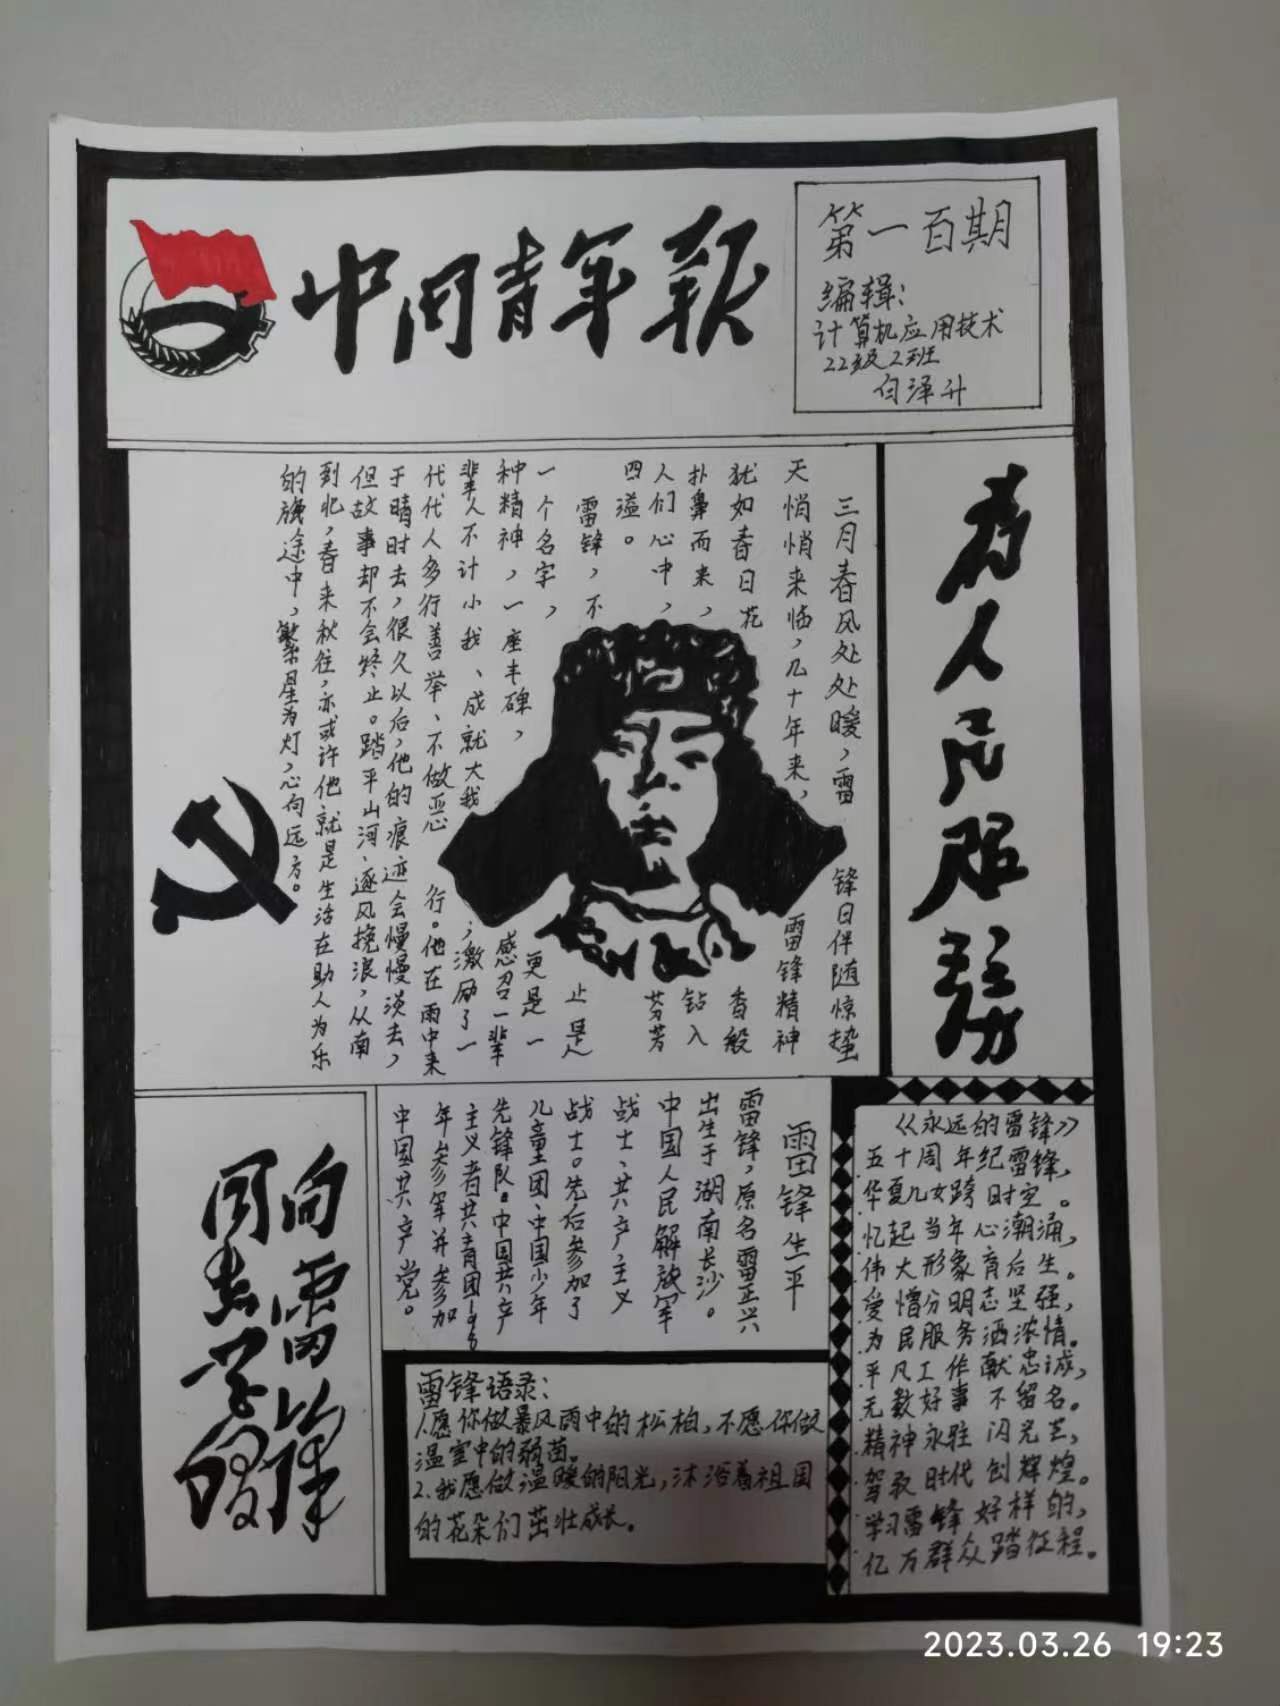 中国青年报
第一百期
编辑：
计算机应用技术
22级2班
白泽升
为人民服务
三月春风处处暖，雷锋日伴随惊蛰
天悄悄来临，几十年来，雷锋精神
犹如春日花香般
扑鼻而来，钻入
人们心中，芬芳
四溢。
雷锋，不止是
一个名字，更是一
种精神，一座丰碑，感召一辈
辈人不计小我、成就大我，激励了一
代代人多行善举、不做恶行。他在雨中来
于晴时去，很久以后，他的痕迹会慢慢淡去，
但故事却不会终止。踏平山河、逐风挽浪，从南
到北，春来秋往，亦或许他就是生活在助人为乐
的旅途中，繁星为灯，心向远方。
《永远的雷锋》
五十周年纪雷锋，
华夏儿女跨时空。
忆起当年心潮涌，
伟大形象育后生。
爱憎分明志坚强，
为民服务洒浓情。
平凡工作献忠诚，
无数好事不留名。
精神永驻闪光芒，
驾驭时代创辉煌。
学习雷锋好样的，
亿万群众踏征程。
雷锋生平
雷锋，原名雷正兴
出生于湖南长沙。
中国人民解放军
战士、共产主义
战士。先后参加了
儿童团、中国少年
先锋队。中国共产
主义者共青团196
年参军并参加
中国共产党。
雷锋语录：
1.愿你做暴风雨中的松柏，不愿你做
温室中的弱苗。
2.我愿做温暖的阳光，沐浴着祖国
的花朵们茁壮成长。
向雷锋
同志学习
2023.03.26 19:23